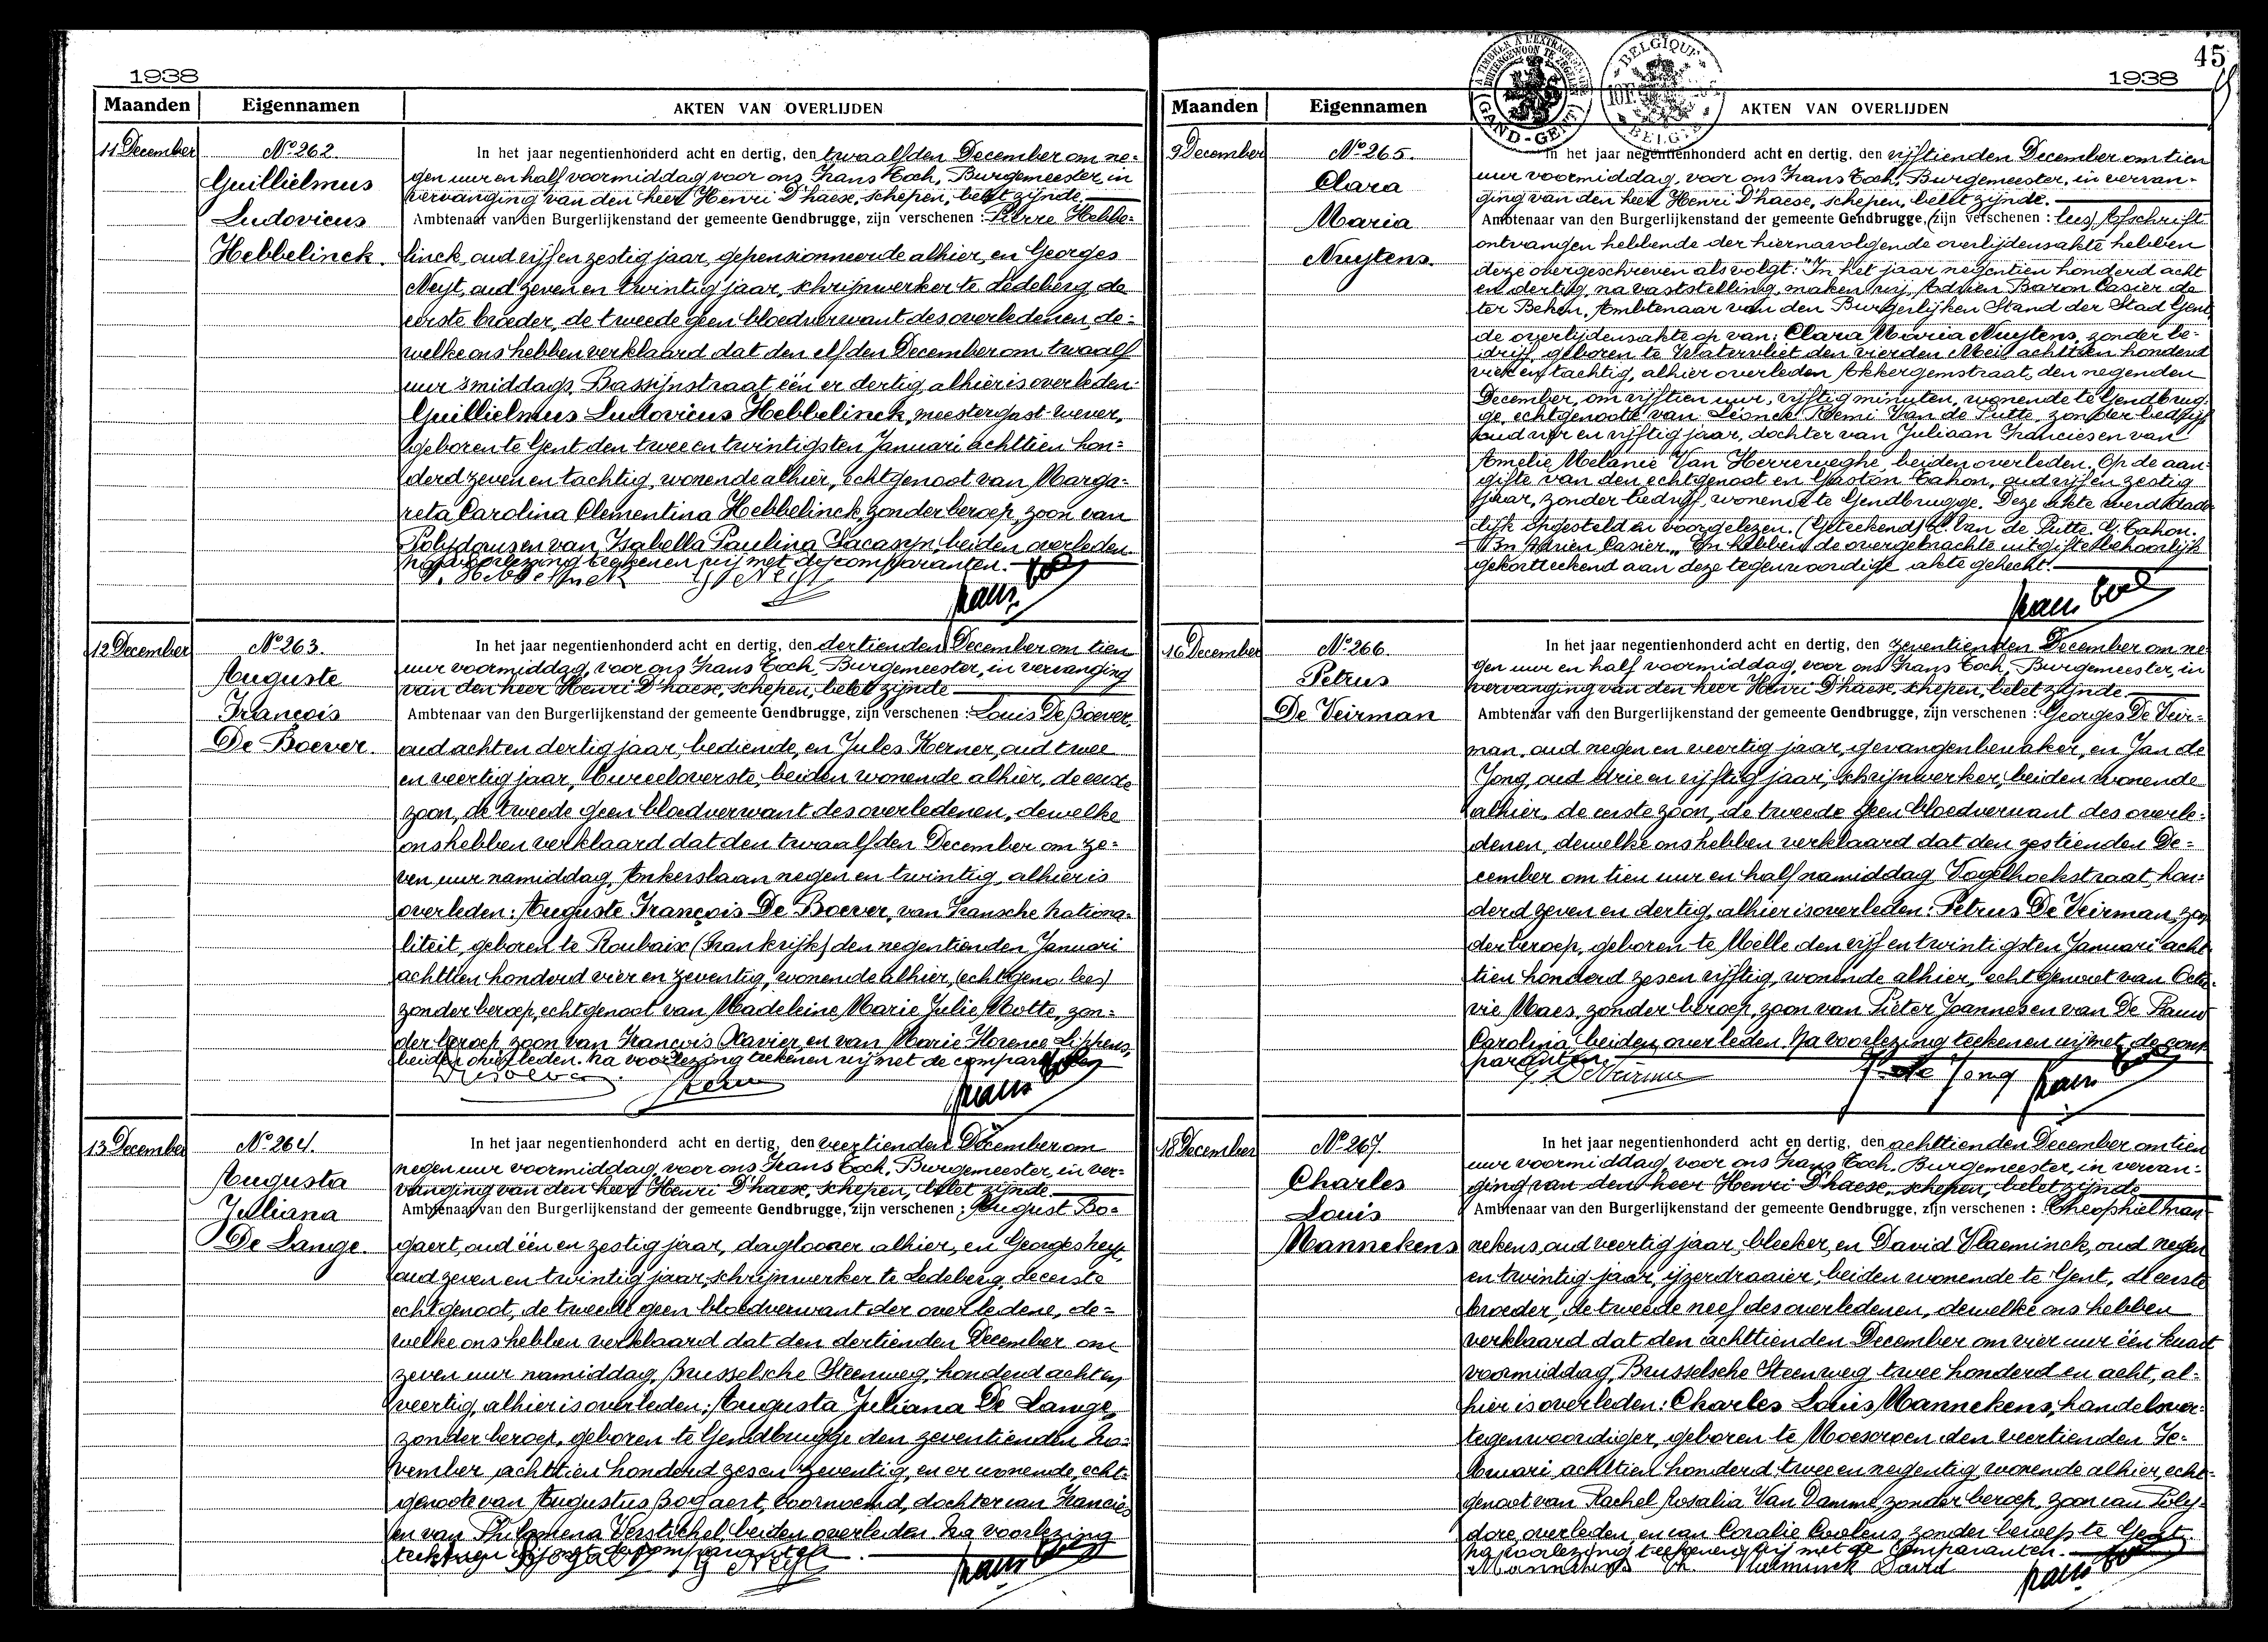 1938
Maanden Eigennamen AKTEN VAN OVERLIJDEN
11 December
Nº 262.
Guillielmus
Ludovicus
Hebbelinck.
In het jaar negentienhonderd acht en dertig, den twaalfden December om ne-
gen uur en half voormiddag voor ons Frans Toch, Burgemeester, in
vervanging van den heer Henri D'haese, schepen, belet zijnde
Ambtenaar van den Burgerlijkenstand der gemeente Gendbrugge, zijn verschenen : Pierre Hebbe-
linck, oud vijf en zestig jaar, gepensionneerde alhier, en Georges
Neyt, oud zeven en twintig jaar, schrijnwerker te Ledeberg, de
eerste broeder, de tweede geen bloedverwant des overledenen, de-
welke ons hebben verklaard dat den elfden December om twaalf
uur 's middags, Bassijnstraat één en dertig, alhier is overleden:
Guillielmus Ludovicus Hebbelinck, meestergast-wever,
geboren te Gent den twee en twintigsten Januari achttien hon-
derd zeven en tachtig, wonende alhier, echtgenoot van Marga-
reta Carolina Clementina Hebbelinck, zonder beroep, zoon van
Polydorus en van Isabella Paulina Cacasyn, beiden overleden.
Na voorlezing teekenen wij met de comparanten.
P. Hebbelinck G. Neyt
12 December
Nº 263.
Auguste
François
De Boever.
In het jaar negentienhonderd acht en dertig, den dertienden December om tien
uur voormiddag, voor ons Frans Toch, Burgemeester, in vervanging
van den heer Henri D'haese, schepen, belet zijnde
Ambtenaar van den Burgerlijkenstand der gemeente Gendbrugge, zijn verschenen : Louis De Boever,
oud acht en dertig jaar, bediende, en Jules Kerner, oud twee
en veertig jaar, bureeloverste, beiden wonende alhier, de eerste
zoon, de tweede geen bloedverwant des overledenen, dewelke
ons hebben verklaard dat den twaalfden December om ze-
ven uur namiddag, Ankerslaan negen en twintig, alhier is
overleden: Auguste François De Boever, van Fransche nationa-
liteit, geboren te Roubaix (Frankrijk) den negentienden Januari
achttien honderd vier en zeventig, wonende alhier, (echtgeno. lees)
zonder beroep, echtgenoot van Madeleine Marie Julie Motte, zon-
der beroep, zoon van François Xavier, en van Marie Florence Lippens,
beiden overleden. Na voorlezing teekenen wij met de comparanten
13 December
Nº 264.
Augusta
Julliana
De Lange.
In het jaar negentienhonderd acht en dertig, den veertienden December om
negen uur voormiddag, voor ons Frans Toch, Burgemeester, in ver-
vanging van den heer Henri D'haese, schepen, belet zijnde
Ambtenaar van den Burgerlijkenstand der gemeente Gendbrugge, zijn verschenen : August Bo-
gaert, oud één en zestig jaar, daglooner alhier, en Georges Neyt,
oud zeven en twintig jaar, schrijnwerker te Ledeberg, de eerste
echtgenoot, de tweede geen bloedverwant der overledene, de-
welke ons hebben verklaard dat den dertienden December om
zeven uur namiddag, Brusselsche Steenweg, honderd acht en
veertig, alhier is overleden: Augusta Juliana De Lange,
zonder beroep, geboren te Gendbrugge den zeventienden No-
vember achttien honderd zes en zeventig, en er wonende, echt-
genoote van Augustus Bogaert, voornoemd, dochter van Francies
en van Philomena Verstichel, beiden overleden. Na voorlezing
teekenen wij met de comparanten
Bogaert G. Neyt
45
1938
Maanden Eigennamen AKTEN VAN OVERLIJDEN
GAND-GENT
BELGIQUE
BELGIE
9 December
Nº 265.
Clara
Maria
Nuytens.
In het jaar negentienhonderd acht en dertig, den vijftienden December om tien
uur voormiddag, voor ons Frans Toch, Burgemeester, in vervan-
ging van den heer Henri D'haese, schepen, belet zijnde.
Ambtenaar van den Burgerlijkenstand der gemeente Gendbrugge, (zijn verschenen : lees) Afschrift
ontvangen hebbende der hiernavolgende overlijdensakte hebben
deze overgeschreven als volgt: "In het jaar negentien honderd acht
en dertig, na vaststelling, maken wij, Adrien Baron Casier de
ter Beken, Ambtenaar van den Burgerlijken Stand der Stad Gent,
de overlijdensakte op van: Clara Maria Nuytens, zonder be-
drijf, geboren te Watervliet den vierden Mei achttien honderd
vier en tachtig, alhier overleden Akkergemstraat, den negenden
December, om vijftien uur, vijftig minuten, wonende te Gendbrug-
ge, echtgenoote van Léonck Remi Van de Putte, zonder bedrijf
oud vier en vijftig jaar, dochter van Juliaan Francies en van
Amelie Melanie Van Herreweghe, beiden overleden. Op de aan-
gifte van den echtgenoot en Gaston Cahon, oud vijf en zestig
jaar, zonder bedrijf, wonende te Gendbrugge. Deze akte werd dade-
lijk opgesteld en voorgelezen. (Geteekend) R. Van de Putte. G. Cahon.
Bn Adrien Casier." En hebben de overgebrachte uitgifte behoorlijk
gekortteekend aan deze tegenwoordige akte gehecht.
16 December
Nº 266.
Petrus
De Veirman
In het jaar negentienhonderd acht en dertig, den zeventienden December om ne-
gen uur en half voormiddag, voor ons Frans Toch, Burgemeester, in
vervanging van den heer Henri D'haese, schepen, belet zijnde
Ambtenaar van den Burgerlijkenstand der gemeente Gendbrugge, zijn verschenen : Georges De Veir-
man, oud negen en veertig jaar, gevangenbewaker, en Jan de
Jong, oud drie en vijftig jaar, schrijnwerker, beiden wonende
alhier, de eerste zoon, de tweede geen bloedverwant des overle-
denen, dewelke ons hebben verklaard dat den zestienden De-
cember om tien uur en half namiddag, Vogelhoekstraat, hon-
derd zeven en dertig, alhier is overleden: Petrus De Veirman, zon-
der beroep, geboren te Melle den vijf en twintigsten Januari acht
tien honderd zes en vijftig, wonende alhier, echtgenoot van Octa-
vie Maes, zonder beroep, zoon van Pieter Joannes en van De Pauw
Carolina, beiden overleden. Na voorlezing teekenen wij met de com-
paranten.
G. De Veirman J. de Jong
18 December
Nº 267.
Charles
Louis
Mannekens
In het jaar negentienhonderd acht en dertig, den achttienden December om tien
uur voormiddag voor ons Frans Toch, Burgemeester, in vervan-
ging van den heer Henri D'haese, schepen, belet zijnde
Ambtenaar van den Burgerlijkenstand der gemeente Gendbrugge, zijn verschenen : Theophiel Man-
nekens, oud veertig jaar, bleeker, en David Vlaeminck, oud negen
en twintig jaar, ijzerdraaier, beiden wonende te Gent, de eerste
broeder, de tweede neef des overledenen, dewelke ons hebben
verklaard dat den achttienden December om vier uur één kwart
voormiddag, Brusselsche Steenweg twee honderd en acht, al-
hier is overleden: Charles Louis Mannekens, handelsver-
tegenwoordiger, geboren te Moescroen den veertienden Fe-
bruari achttien honderd twee en negentig, wonende alhier, echt-
genoot van Rachel Rosalia Van Damme, zonder beroep, zoon van Poly-
dore, overleden, en van Coralie Coolens, zonder beroep te Gent.
Na voorlezing teekenen wij met de comparanten.
Mannekens Th Vlaeminck David